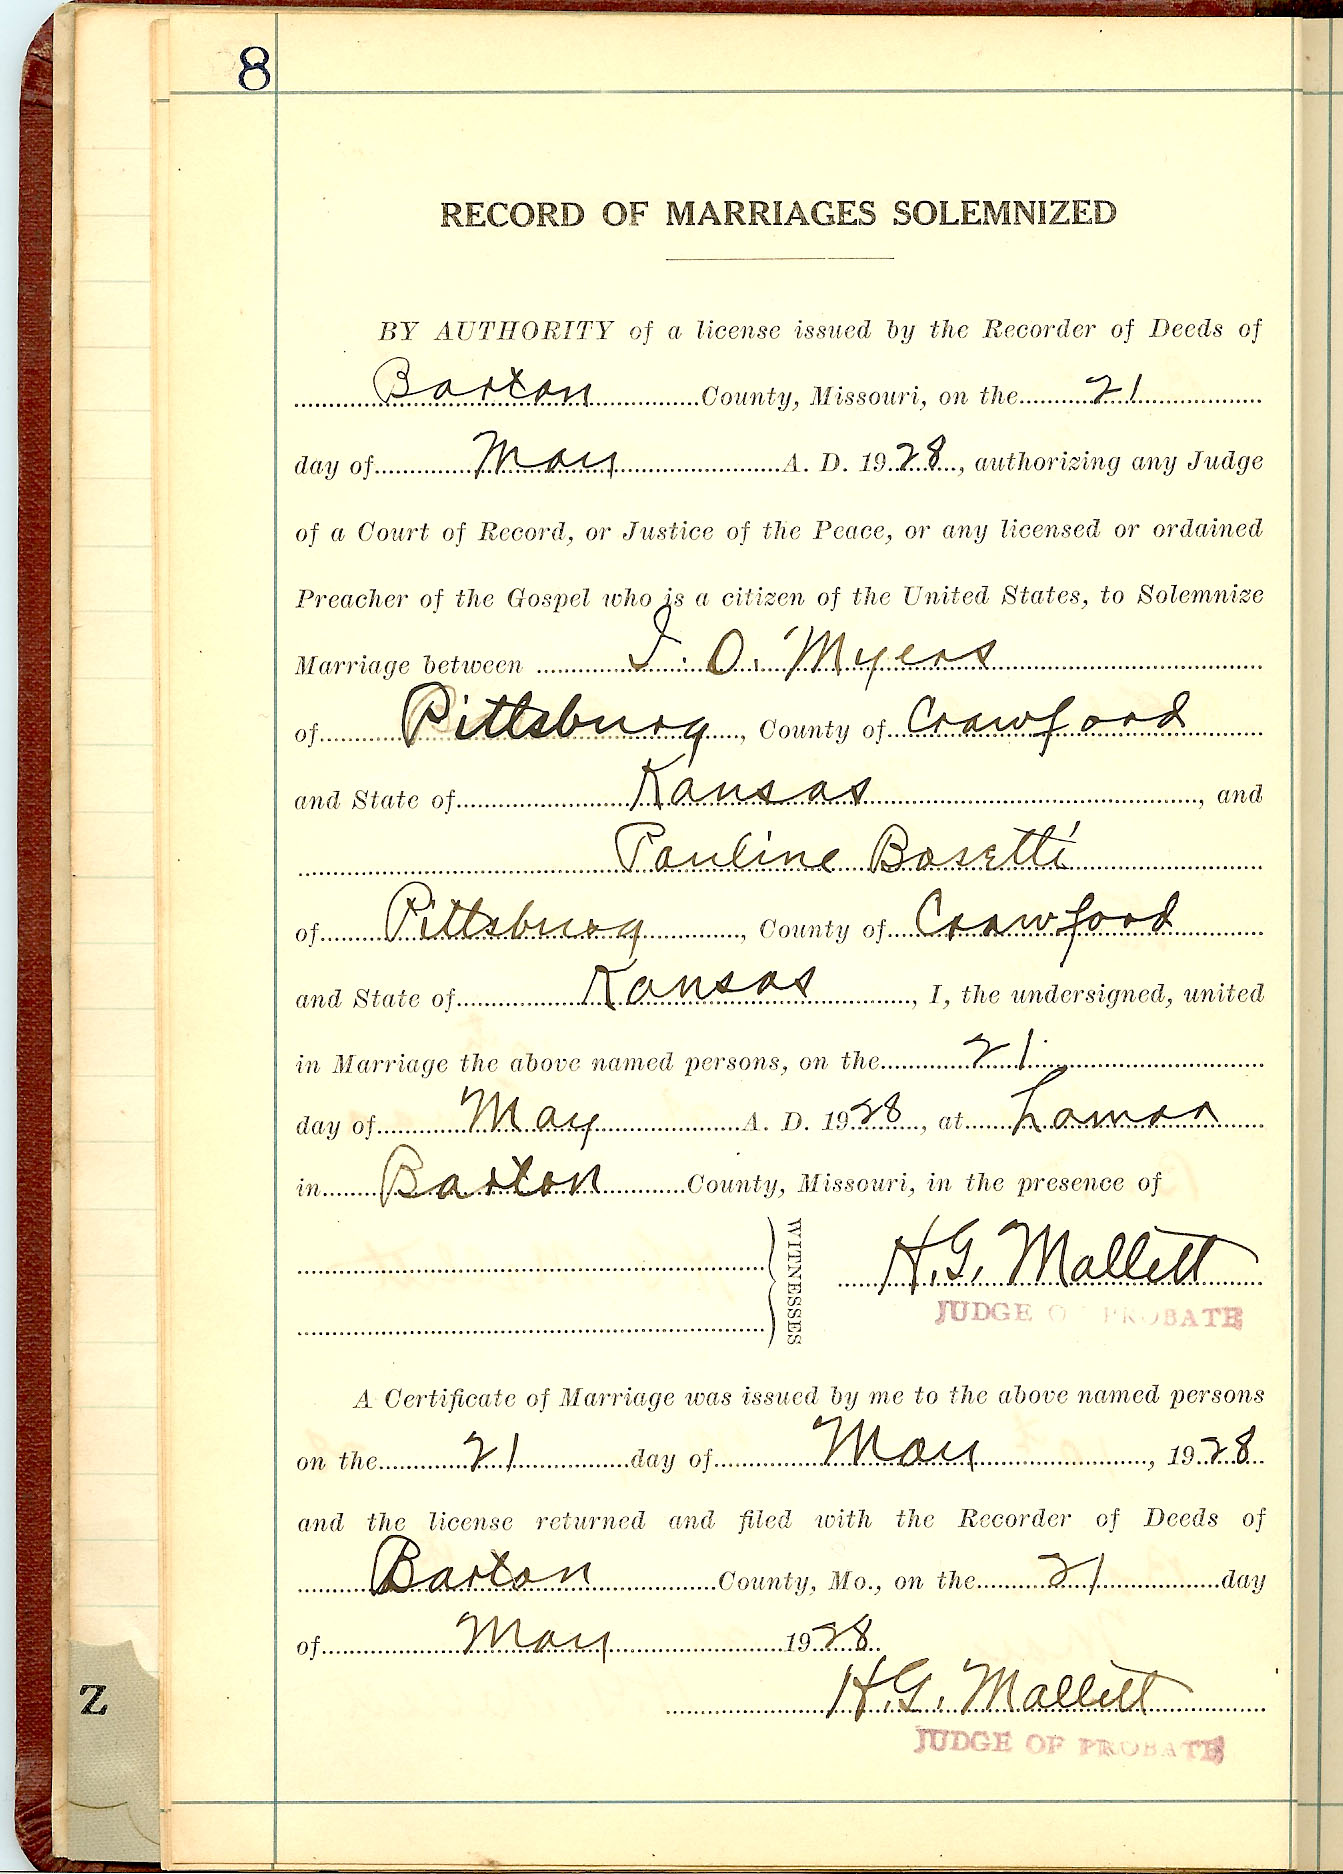 8
RECORD OF MARRIAGES SOLEMNIZED
BY AUTHORITY of a license issued by the Recorder of Deeds of
Barton County, Missouri, on the 21
day of May A. D. 1928, authorizing any Judge
of a Court of Record, or Justice of the Peace, or any licensed or ordained
Preacher of the Gospel who is a citizen of the United States, to Solemnize
Marriage between I. O. Myers
of Pittsburg, County of Crawford
and State of Kansas, and
Pauline Bosetti
of Pittsburg, County of Crawford
and State of Kansas, I, the undersigned, united
in Marriage the above named persons, on the 21
day of May A. D. 1928, at Lamar
in Barton County, Missouri, in the presence of
WITNESSES
H. G. Mallett
JUDGE OF PROBATE
A Certificate of Marriage was issued by me to the above named persons
on the 21 day of May, 1928
and the license returned and filed with the Recorder of Deeds of
Barton County, Mo., on the 21 day
of May 1928.
H. G. Mallett
JUDGE OF PROBATE
Z